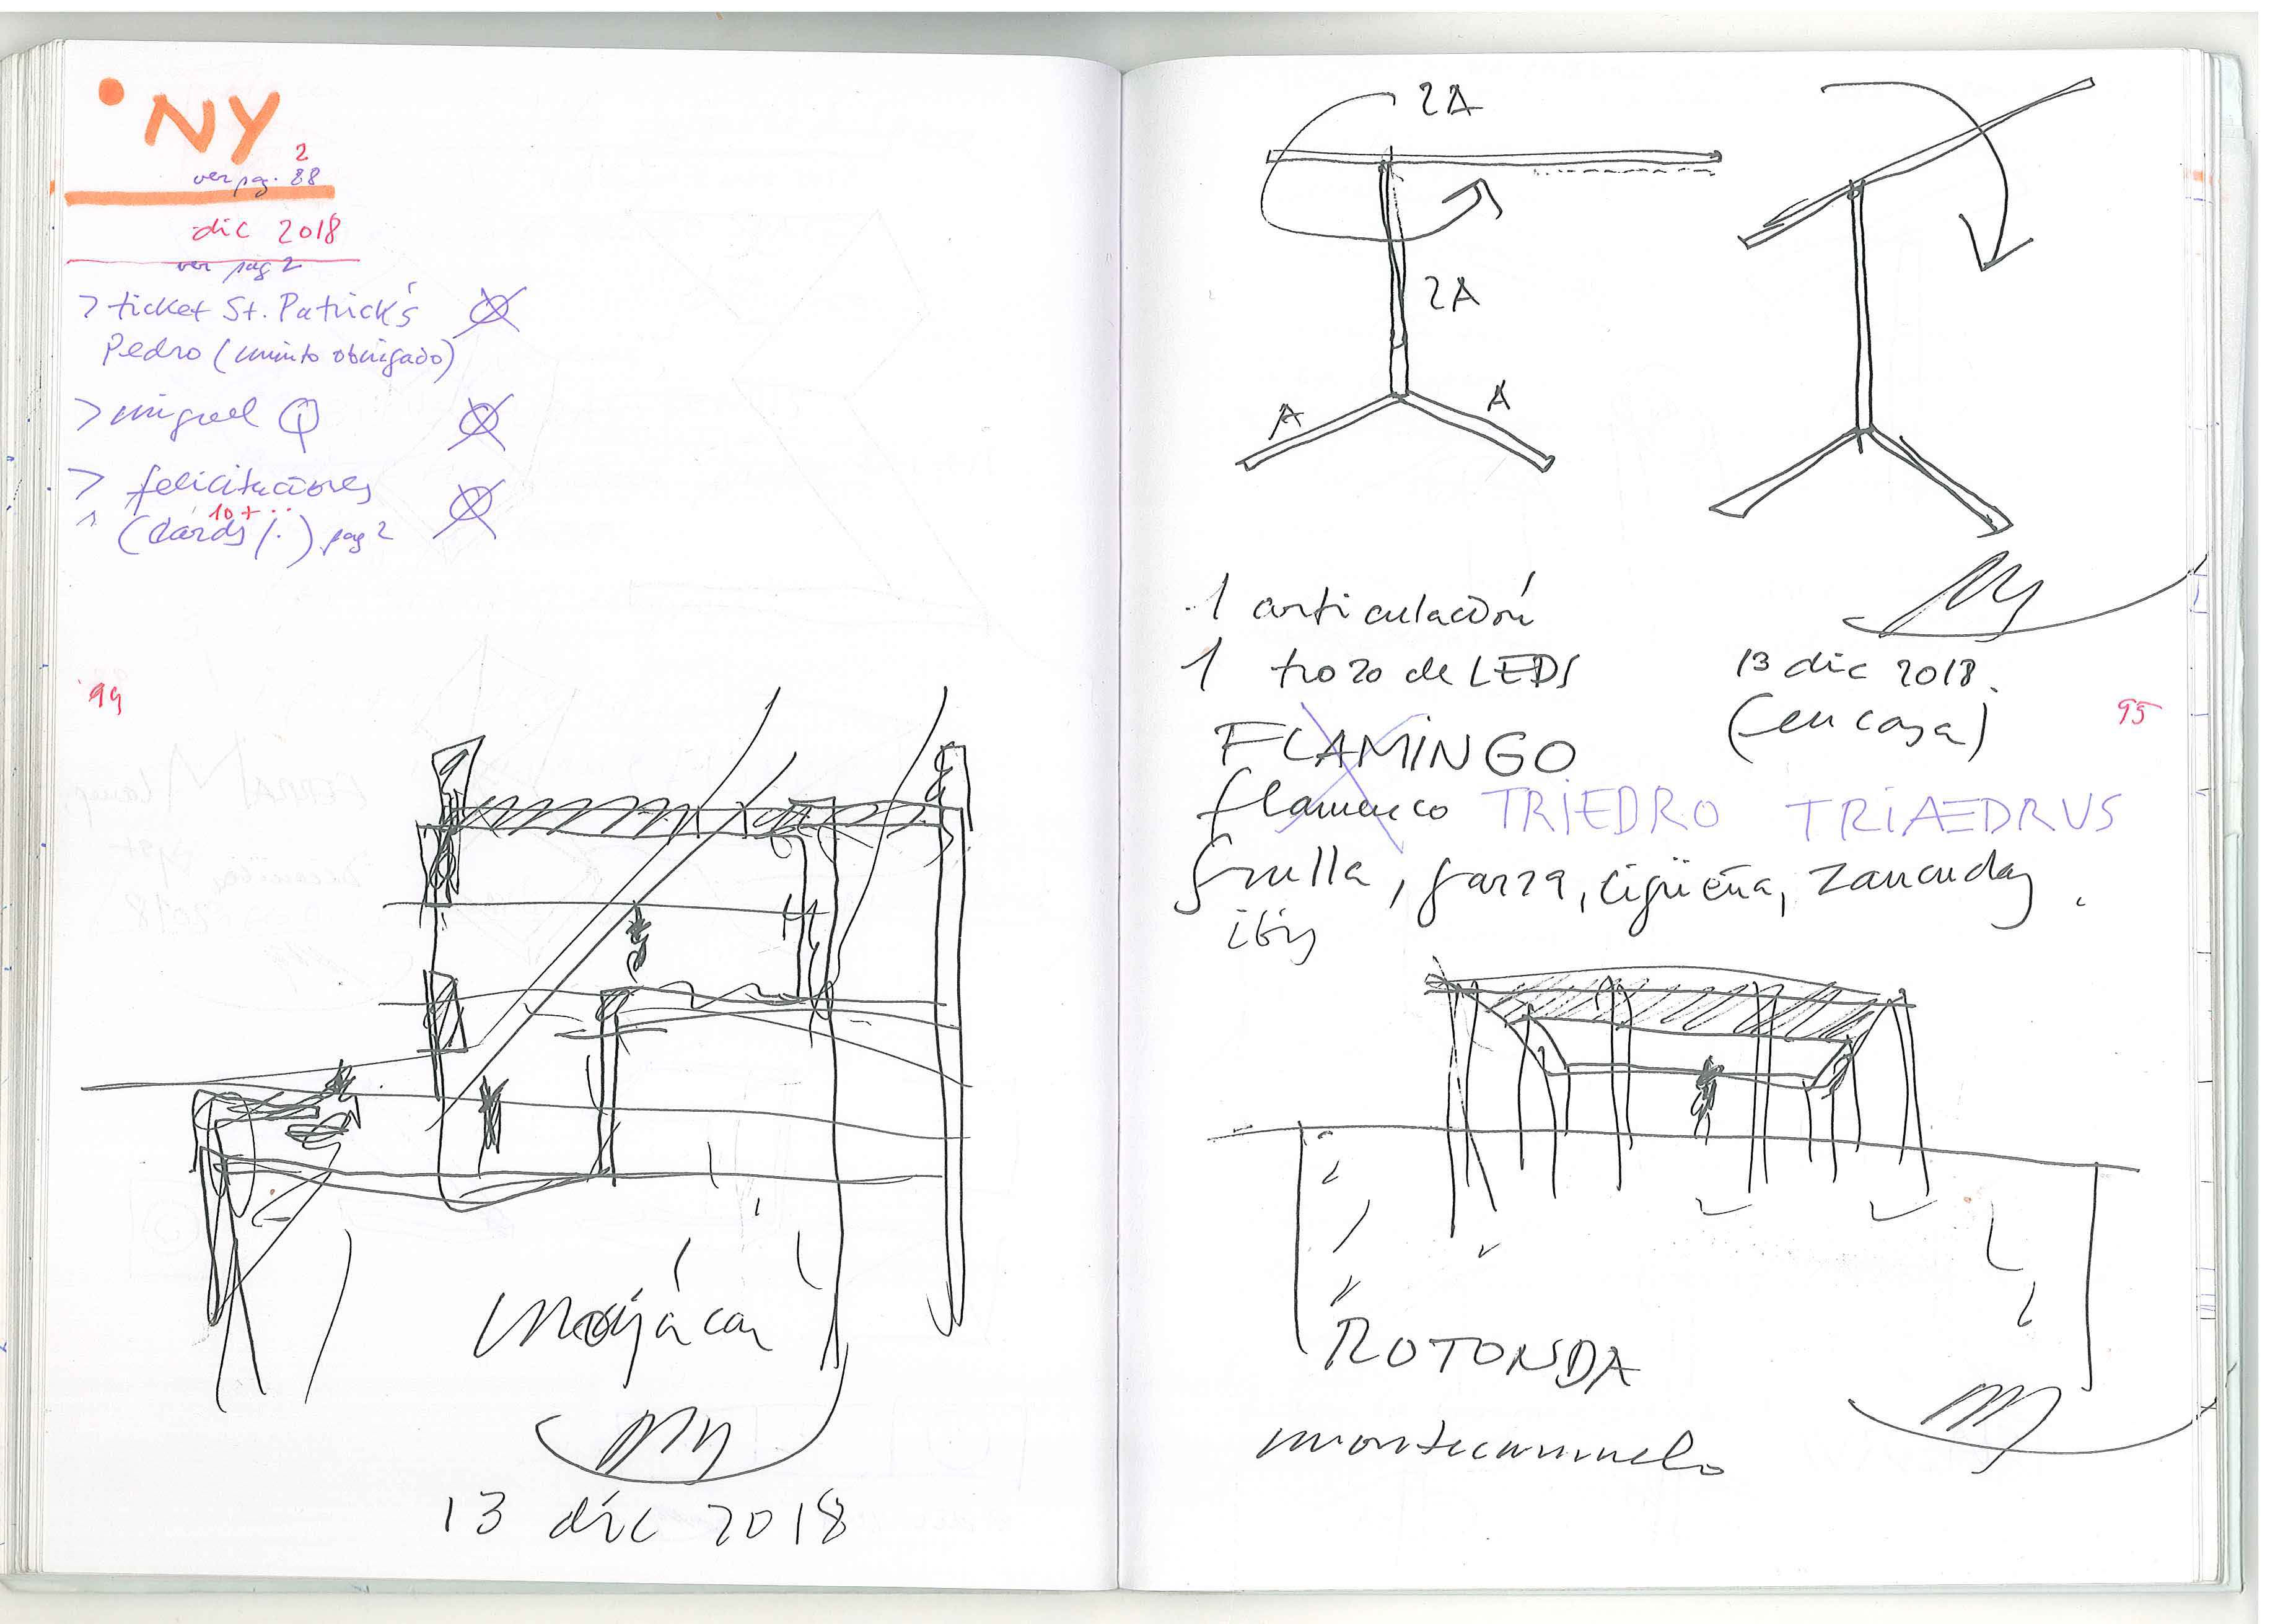 NY
2
ver pag. 88
dic 2018
ver pag 2
> ticket St. Patrick's
Pedro (muinto obrigado)
> miguel Q
> felicitaciones
10+..
(cards/.) pag 2
94
Mojácar
13 dic 2018
2A
2A
A
A
1 articulación
1 trozo de LEDS
13 dic 2018.
(en casa)
95
FLAMINGO
flamenco TRIEDRO TRIAEDRUS
grulla, garza, cigüeña, zancudas.
ibis
ROTONDA
montecarmelo